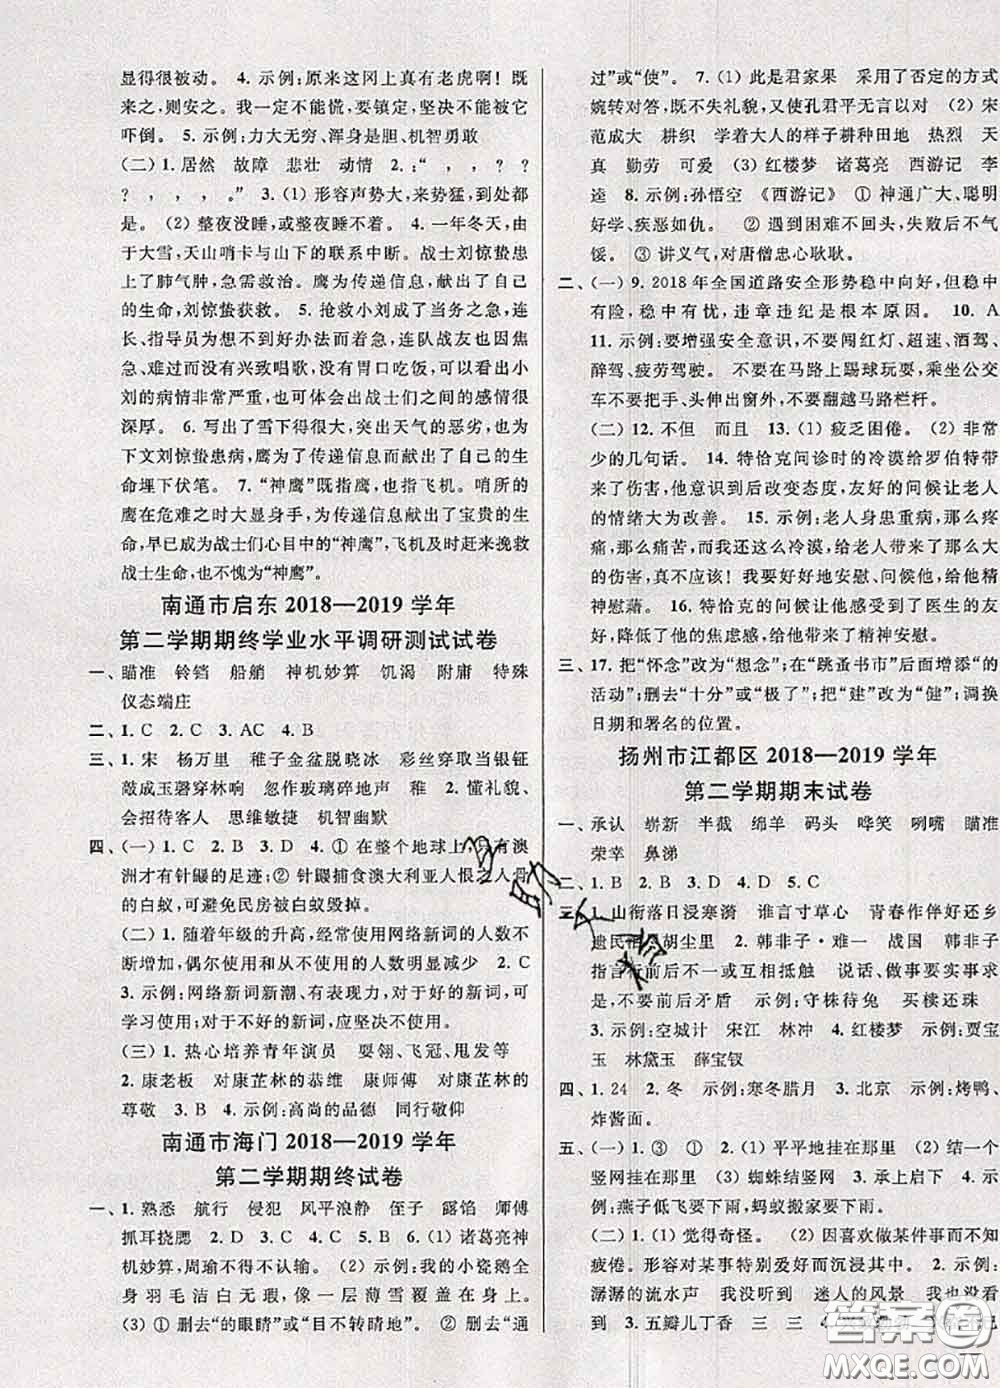 显得很被动。　4. 示例:原来这冈上真有老虎啊! 既
来之,则安之。我一定不能慌,要镇定,坚决不能被它
吓倒。　5. 示例:力大无穷、浑身是胆、机智勇敢
(二) 1. 居然　故障　悲壮　动情　2. :“　,　,　?　?
?　,　,　,　。”　3. (1) 形容声势大,来势猛,到处都
是。　(2) 整夜没睡,或整夜睡不着。　4. 一年冬天,由
于大雪,天山哨卡与山下的联系中断。战士刘惊蛰患
上了肺气肿,急需救治。鹰为传递信息,献出了自己
的生命,刘惊蛰获救。　5. 抢救小刘成了当务之急,连
长、指导员为想不到好办法而着急;连队战友也因焦
急,出发时没有兴致唱歌,也没有胃口吃饭,可以看出小
刘的病情非常严重,也体会出战士们之间的感情很
深厚。　6. 写出了雪下得很大,突出天气的恶劣,也为
下文刘惊蛰患病,鹰为了传递信息献出了自己的生
命埋下伏笔。　7. “神鹰”既指鹰,也指飞机。哨所的
鹰在危难之时大显身手,为传递信息献出了宝贵的生命,
早已成为战士们心目中的“神鹰”,飞机及时赶来挽救
战士生命,也不愧为“神鹰”。
南通市启东 2018—2019 学年
第二学期期终学业水平调研测试试卷
一、瞄准　铃铛　船艄　神机妙算　饥渴　附庸　特殊
仪态端庄
二、1. C　2. C　3. AC　4. B
三、1. 宋　杨万里　稚子金盆脱晓冰　彩丝穿取当银钲
敲成玉磬穿林响　忽作玻璃碎地声　2. 懂礼貌、
会招待客人　思维敏捷　机智幽默
四、(一) 1. B　2. C　3. D　4. ① 在整个地球上,只有澳
洲才有针鼹的足迹;② 针鼹捕食澳大利亚人恨之入骨
的白蚁,可避免民房被白蚁毁掉。
(二) 1. 随着年级的升高,经常使用网络新词的人数不
断增加,偶尔使用和从来不使用的人数明显减少　2. C
3. 示例:网络新词新潮、有表现力,对于好的新词,可
学习使用;对于不好的新词,应坚决不用。
(三) 1. 热心培养青年演员　耍翎、飞冠、甩发等
2. 康老板　对康芷林的恭维　康师傅　对康芷林的
尊敬　3. B　4. 示例:高尚的品德　同行敬仰
南通市海门 2018—2019 学年
第二学期期终试卷
一、1. 熟悉　航行　侵犯　风平浪静　侄子　露馅　师傅
抓耳挠腮　2. D　3. C　4. A　5. C　6. (1) 诸葛亮神
机妙算,周瑜不得不认输。　(2) 示例:我的小瓷鹅全
身羽毛洁白无瑕,像一片薄雪覆盖在它的身上。
(3) ① 删去“的眼睛”或“目不转睛地”。　② 删去“通
过”或“使”。　7. (1) 此是君家果　采用了否定的方式
婉转对答,既不失礼貌,又使孔君平无言以对　(2) 宋
范成大　耕织　学着大人的样子耕种田地　热烈　天
真　勤劳　可爱　(3) 红楼梦　诸葛亮　西游记　李
逵　8. 示例:孙悟空　《西游记》　① 神通广大、聪明
好学、疾恶如仇。　② 遇到困难不回头,失败后不气
馁。　③ 讲义气,对唐僧忠心耿耿。
二、(一) 9. 2018 年全国道路安全形势稳中向好,但稳中
有险,稳中有忧,违章违纪是根本原因。　10. A
11. 示例:要增强安全意识,不要闯红灯、超速、酒驾、
醉驾、疲劳驾驶。　不要在马路上踢球玩耍,乘坐公交
车不要把手、头伸出窗外,不要翻越马路栏杆。
(二) 12. 不但　而且　13. (1) 疲乏困倦。　(2) 非常
少的几句话。　14. 特恰克问诊时的冷漠给罗伯特带
来了伤害,他意识到后改变态度,友好的问候让老人
的情绪大为改善。　15. 示例:老人身患重病,那么疼
痛,那么痛苦,而我这么冷漠,给老人带来伤害,真不应该,
真不应该! 我要好好地安慰、问候他,给他
精神慰藉。　16. 特恰克的问候,感受到了医生的友好
缓解了他的焦虑感,给了他精神安慰。
三、17. 把“怀念”改为“想念”;在“跳蚤书市”后面增添“的
活动”;删去“十分”或“极了”;把“建”改为“健”;调换
日期和署名的位置。
扬州市江都区 2018—2019 学年
第二学期期末试卷
一、承认　崭新　半截　绵羊　码头　哗笑　咧嘴　瞄准
荣幸　鼻涕
二、1. B　2. B　3. D　4. D　5. D
三、1. 山衔落日浸寒漪　谁言寸草心　青春作伴好还乡
遗民泪尽胡尘里　2. 韩非子·难一　战国　韩非子
指言行前后不一或互相抵触　说话、做事要实事求
是,不要前后矛盾　示例:守株待兔　买椟还珠
3. 示例:空城计　宋江　林冲　4. 红楼梦　示例:贾宝
玉　林黛玉　薛宝钗
四、1. 24　2. 冬　示例:寒冬腊月　3. 北京　示例:烤鸭、
炸酱面。
五、(一) 1. ③　①　2. (1) 平平地挂在那里　(2) 结一个
竖网挂在那里　(3) 蜘蛛结竖网　3. 承上启下　4. 示
例:燕子低飞要下雨,蚂蚁搬家要下雨。
(二) 1. (1) 觉得奇怪。　(2) 因喜欢做某件事而不知
疲倦。形容对某事特别爱好而沉浸其中。　2. 示例:
潺潺的流水声　我也没听到　迷人的风景　我也没看
到　3. 五瓣儿丁香　三　三　4.
答案圈
MXQE.COM